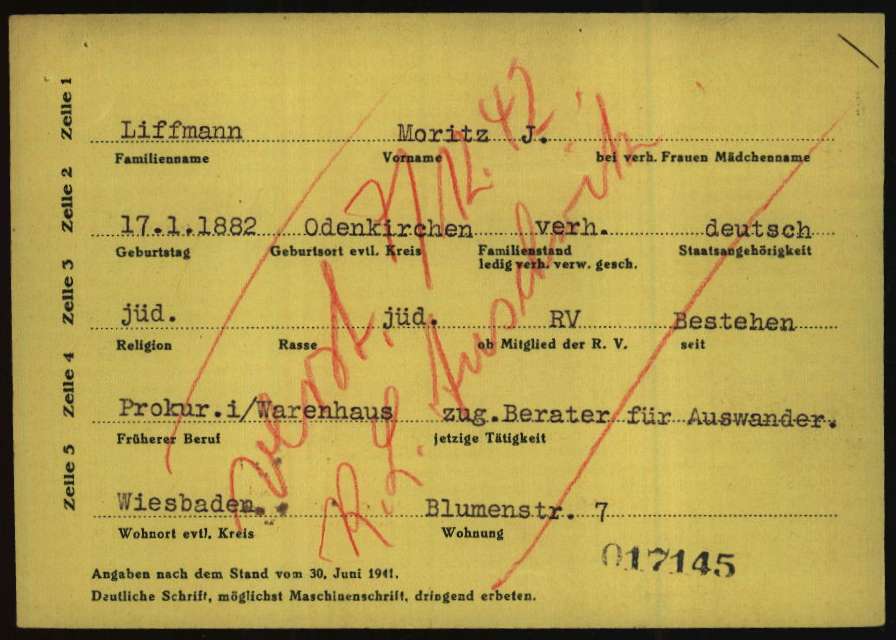 Zelle 1
Liffmann Moritz J.
Familienname Vorname bei verh. Frauen Mädchenname
Zelle 2
17.1.1882 Odenkirchen verh. deutsch
Geburtstag Geburtsort evtl. Kreis Familienstand Staatsangehörigkeit
ledig verh. verw. gesch.
Zelle 3
jüd. jüd. RV Bestehen
Religion Rasse ob Mitglied der R. V. seit
Zelle 4
Prokur.i/Warenhaus zug.Berater für Auswander.
Früherer Beruf jetzige Tätigkeit
Zelle 5
Wiesbaden. Blumenstr. 7
Wohnort evtl. Kreis Wohnung
017145
Angaben nach dem Stand vom 30. Juni 1941.
Deutliche Schrift, möglichst Maschinenschrift, dringend erbeten.
verst. 12. 42
K.L. Auschwitz